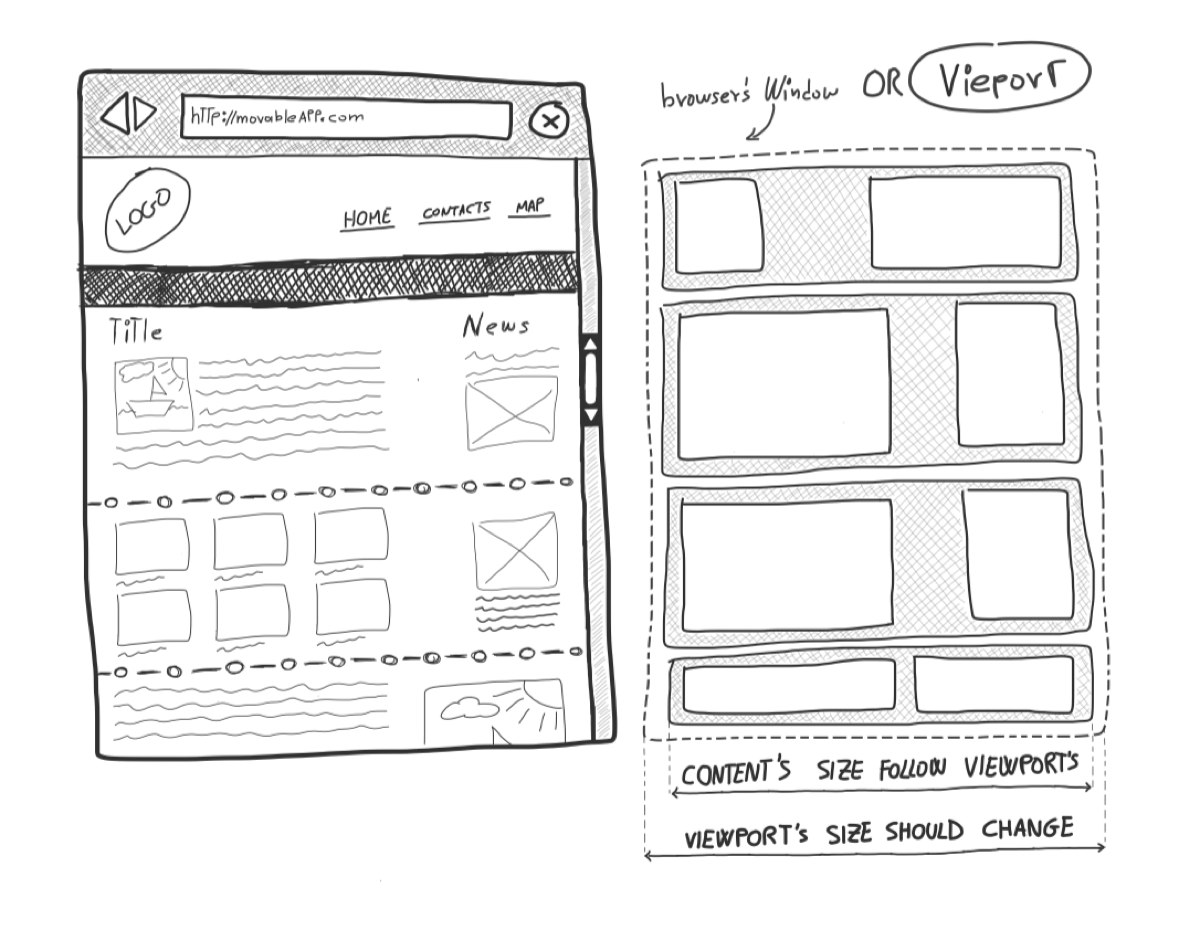 hTTp://movableAPP.com
LOGO
HOME CONTACTS MAP
TiTle
News
browser's Window OR Vieport
CONTENT'S SIZE FOLLOW VIEWPORT'S
VIEWPORT'S SIZE SHOULD CHANGE